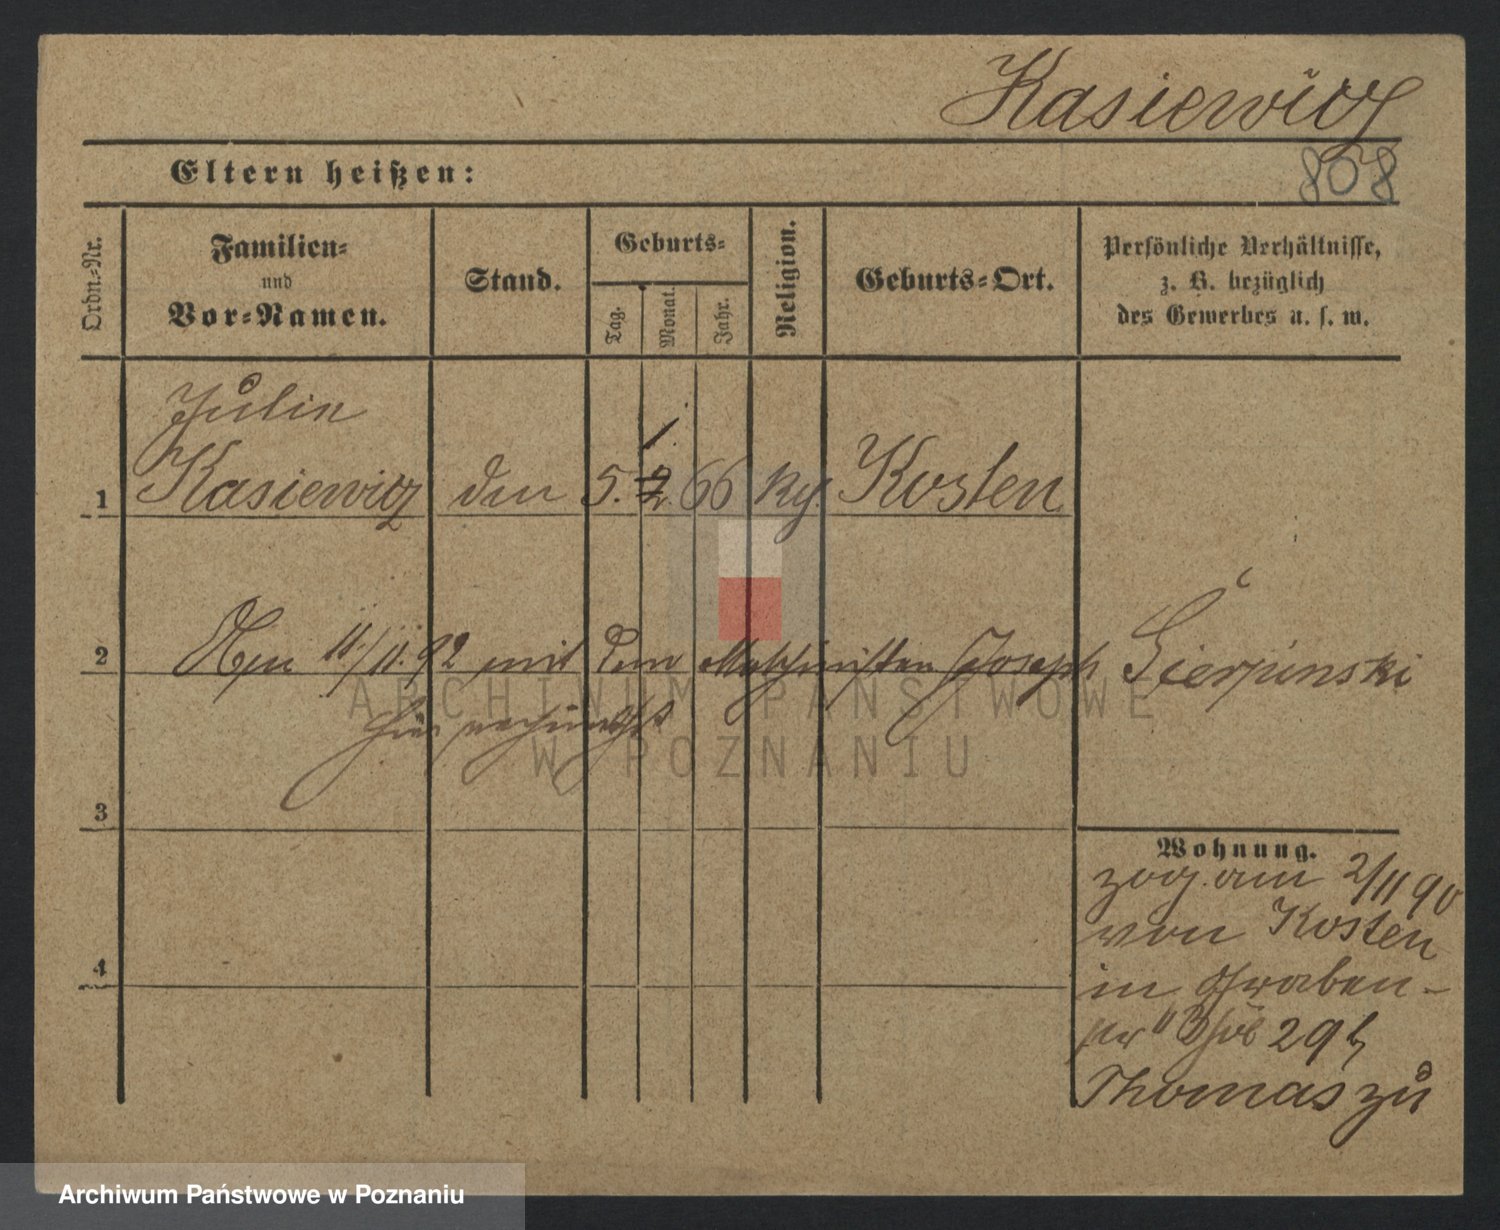 Kasiewicz
Eltern heißen:
808
Ordn.-Nr.
Familien-
und
Vor-Namen.
Stand.
Geburts-
Tag.
Monat.
Jahr.
Religion.
Geburts-Ort.
Persönliche Verhältnisse,
z. B. bezüglich
des Gewerbes u. s. w.
Julie
1 Kasiewicz den 5. 1. 2. 66 Kosten
2 11./11. 92 mit dem Maschinisten Joseph Sierpinski
hier
ARCHIWUM PAŃSTWOWE
W POZNANIU
3
Wohnung.
zog am 2/11 90
von Kosten
4 in Graben-
str 29 b
Thomas zu
Archiwum Państwowe w Poznaniu